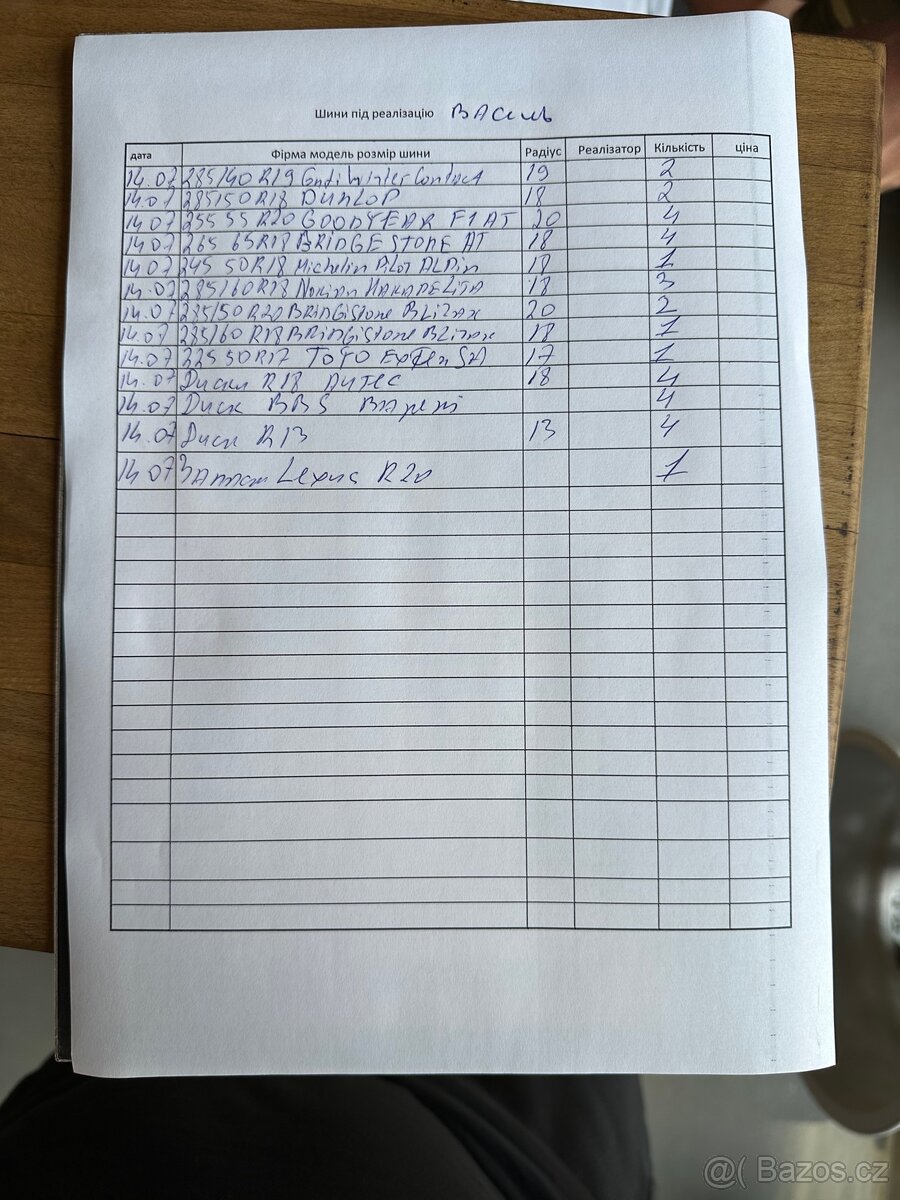 Шини під реалізацію ВАСИЛЬ
дата Фірма модель розмір шини Радіус Реалізатор Кількість ціна
14.07 285/40 R19 Conti Winter Contact 19 2
14.07 285/50 R18 DUNLOP 18 2
14.07 255 55 R20 GOODYEAR F1 AT 20 4
14.07 265 65R18 BRIDGESTONE AT 18 4
14.07 245 50R18 Michelin Pilot ALPin 18 1
14.07 285/60R18 Nokian 18 3
14.07 /50R20 Blizzax 20 2
14.07 285/60 R18 18 1
14.07 225 50R17 TOYO 17 1
14.07 Диски R18 18 4
14.07 Диск BBS 4
14.07 Диск R13 13 4
14.07 Lexus R20 1
@( Bazos.cz